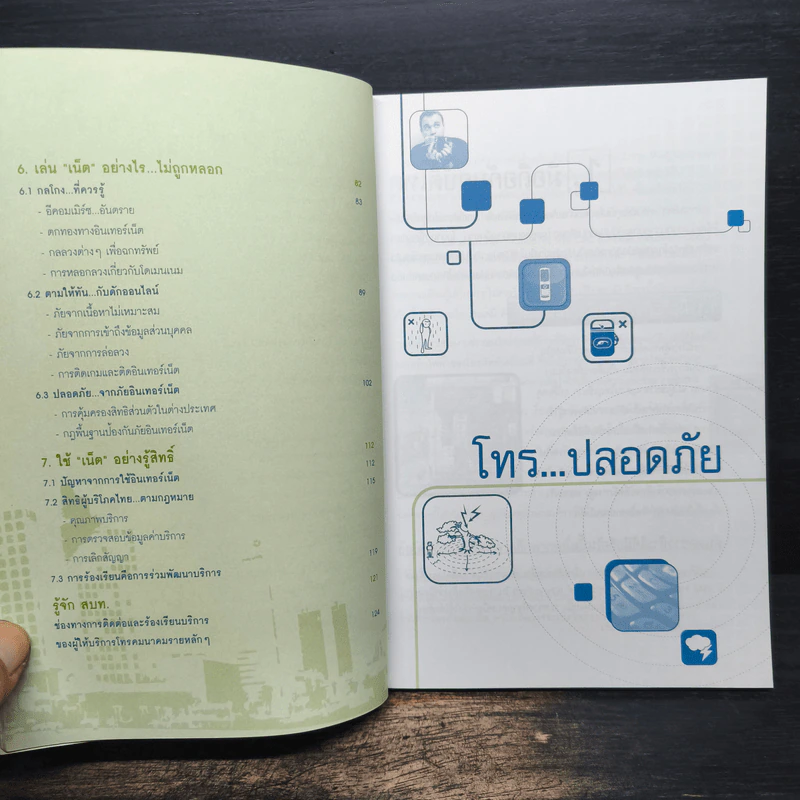 6. เล่น "เน็ต" อย่างไร...ไม่ถูกหลอก 82
6.1 กลโกง...ที่ควรรู้ 83
- อีคอมเมิร์ซ...อันตราย
- ตกทองทางอินเทอร์เน็ต
- กลลวงต่างๆ เพื่อฉกทรัพย์
- การหลอกลวงเกี่ยวกับโดเมนเนม
6.2 ตามให้ทัน...กับดักออนไลน์ 89
- ภัยจากเนื้อหาไม่เหมาะสม
- ภัยจากการเข้าถึงข้อมูลส่วนบุคคล
- ภัยจากการล่อลวง
- การติดเกมและติดอินเทอร์เน็ต
6.3 ปลอดภัย...จากภัยอินเทอร์เน็ต 102
- การคุ้มครองสิทธิส่วนตัวในต่างประเทศ
- กฎพื้นฐานป้องกันภัยอินเทอร์เน็ต
7. ใช้ "เน็ต" อย่างรู้สิทธิ์ 112
7.1 ปัญหาจากการใช้อินเทอร์เน็ต 112
7.2 สิทธิผู้บริโภคไทย...ตามกฎหมาย 115
- คุณภาพบริการ
- การตรวจสอบข้อมูลค่าบริการ
- การเลิกสัญญา 119
7.3 การร้องเรียนคือการร่วมพัฒนาบริการ 121
รู้จัก สบท.
ช่องทางการติดต่อและร้องเรียนบริการ 124
ของผู้ให้บริการโทรคมนาคมรายหลักๆ
โทร...ปลอดภัย